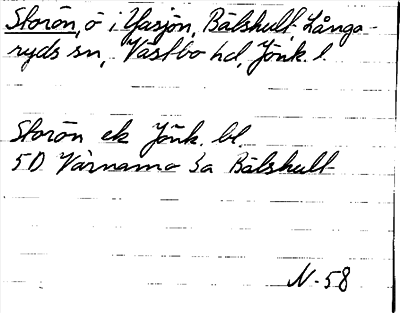 Storön, ö i Yasjön, Bälshult Långa-
ryds sn, Västbo hd, Jönk. l.
Storön ek Jönk. bl.
5D Värnamo 3a Bälshult
N-58